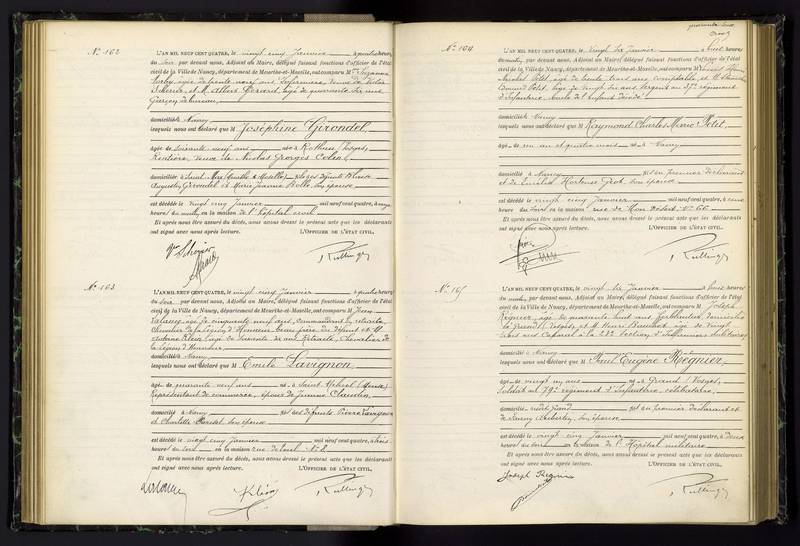 N° 162
L'AN MIL NEUF CENT QUATRE, le vingt cinq Janvier à quatre heures
du soir par devant nous, Adjoint au Maire, délégué faisant fonctions d'officier de l'état
civil de la Ville de Nancy, département de Meurthe-et-Moselle, ont comparu M Suzanne
âgée de trente neuf ans, Infirmière, veuve de Victor
Scherier, et M. Albert Gérard, âgé de quarante six ans
Garçon de bureau
domiciliés à Nancy
lesquels nous ont déclaré que M Joséphine Girondel,
âgée de soixante neuf ans née à Rothau (Vosges)
Rentière, veuve de Nicolas Georges Colin
domiciliée à Saint Max (Meurthe & Moselle) des défunts
Augustin Girondel et Marie Jeanne Rolle, son épouse
est décédée le vingt cinq Janvier mil neuf cent quatre, à onze
heures du matin, en la maison de l'hôpital civil
Et après nous être assuré du décès, nous avons dressé le présent acte que les déclarants
ont signé avec nous après lecture. L'OFFICIER DE L'ÉTAT CIVIL,
N° 163
L'AN MIL NEUF CENT QUATRE, le vingt cinq Janvier à quatre heures
du soir par devant nous, Adjoint au Maire, délégué faisant fonctions d'officier de l'état
civil de la Ville de Nancy, département de Meurthe-et-Moselle, ont comparu M Jean
âgé de cinquante neuf ans, commandant en retraite
Chevalier de la Légion d'Honneur, beau frère du défunt et M.
Klein, âgé de soixante dix ans Retraité, Chevalier de
la Légion d'Honneur
domiciliés à Nancy
lesquels nous ont déclaré que M Emile Lavignon,
âgé de quarante neuf ans né à Saint Mihiel (Meuse)
Représentant de commerce, époux de Jeanne
domicilié à Nancy fils des défunts Pierre Lavignon
et Charlotte son épouse
est décédé le vingt cinq Janvier mil neuf cent quatre, à trois
heures du soir en la maison rue de Toul N° 8
Et après nous être assuré du décès, nous avons dressé le présent acte que les déclarants
ont signé avec nous après lecture. L'OFFICIER DE L'ÉTAT CIVIL,
Klein
N° 164
L'AN MIL NEUF CENT QUATRE, le vingt six Janvier à huit heures
du matin, par devant nous, Adjoint au Maire, délégué faisant fonctions d'officier de l'état
civil de la Ville de Nancy, département de Meurthe-et-Moselle, ont comparu M
Petit, âgé de trente trois ans, comptable, et M
Petit, âgé de vingt six ans Sergent au 37e régiment
d'Infanterie, oncle de l'enfant décédé
domiciliés à Nancy
lesquels nous ont déclaré que M Raymond Charles Marie Petit,
âgé de un an et quatre mois né à Nancy
domicilié à Nancy fils du premier déclarant
et de Hortense son épouse
est décédé le vingt cinq Janvier mil neuf cent quatre, à onze
heures du soir en la maison rue de Mon Désert, N° 66
Et après nous être assuré du décès, nous avons dressé le présent acte que les déclarants
ont signé avec nous après lecture. L'OFFICIER DE L'ÉTAT CIVIL,
N° 165
L'AN MIL NEUF CENT QUATRE, le vingt six Janvier à huit heures
du matin, par devant nous, Adjoint au Maire, délégué faisant fonctions d'officier de l'état
civil de la Ville de Nancy, département de Meurthe-et-Moselle, ont comparu M Joseph
Régnier, âgé de quarante huit ans domicilié
à Grand (Vosges), et M. Henri âgé de vingt
trois ans Caporal à la 23e Section d'Infirmiers militaires
domicilié à Nancy
lesquels nous ont déclaré que M Paul Eugène Régnier,
âgé de vingt un ans né à Grand (Vosges),
Soldat au 79e régiment d'Infanterie, célibataire,
domicilié audit Grand fils du premier déclarant et
de son épouse
est décédé le vingt cinq Janvier mil neuf cent quatre, à deux
heures du soir en la maison de l'Hôpital militaire
Et après nous être assuré du décès, nous avons dressé le présent acte que les déclarants
ont signé avec nous après lecture. L'OFFICIER DE L'ÉTAT CIVIL,
Joseph Régnier